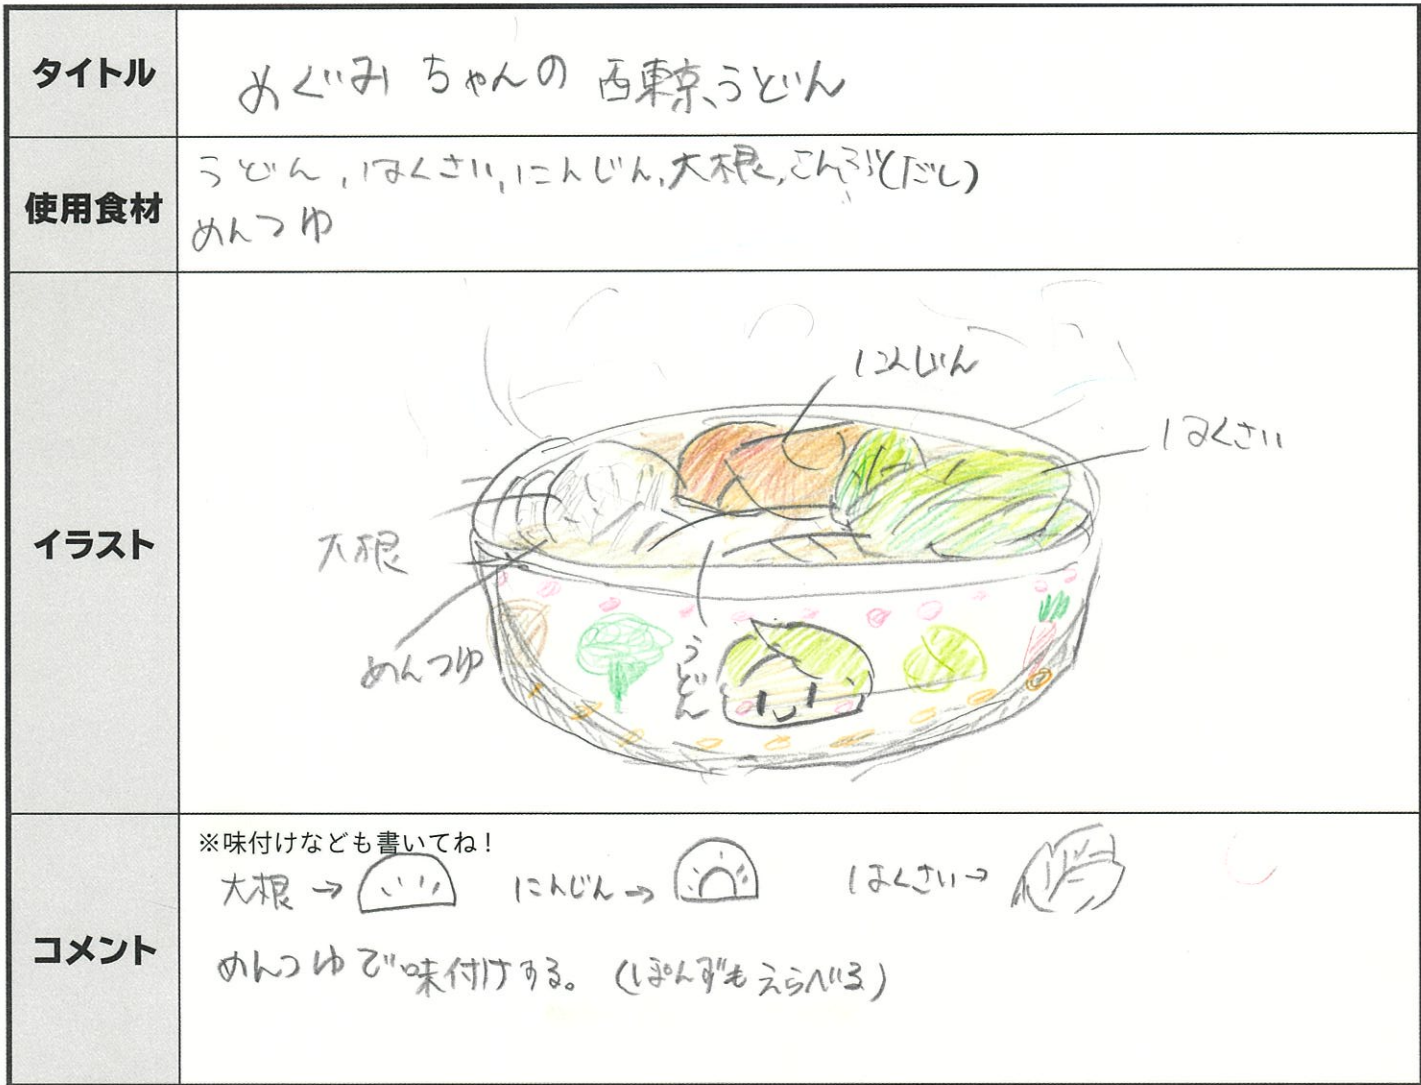 タイトル
めぐみちゃんの西東京うどん
使用食材
うどん,はくさい,にんじん,大根,こんぶ(だし)
めんつゆ
イラスト
にんじん
はくさい
大根
めんつゆ
うどん
コメント
※味付けなども書いてね!
大根→ にんじん→ はくさい→
めんつゆで味付けする。(ぽんずもえらべる)